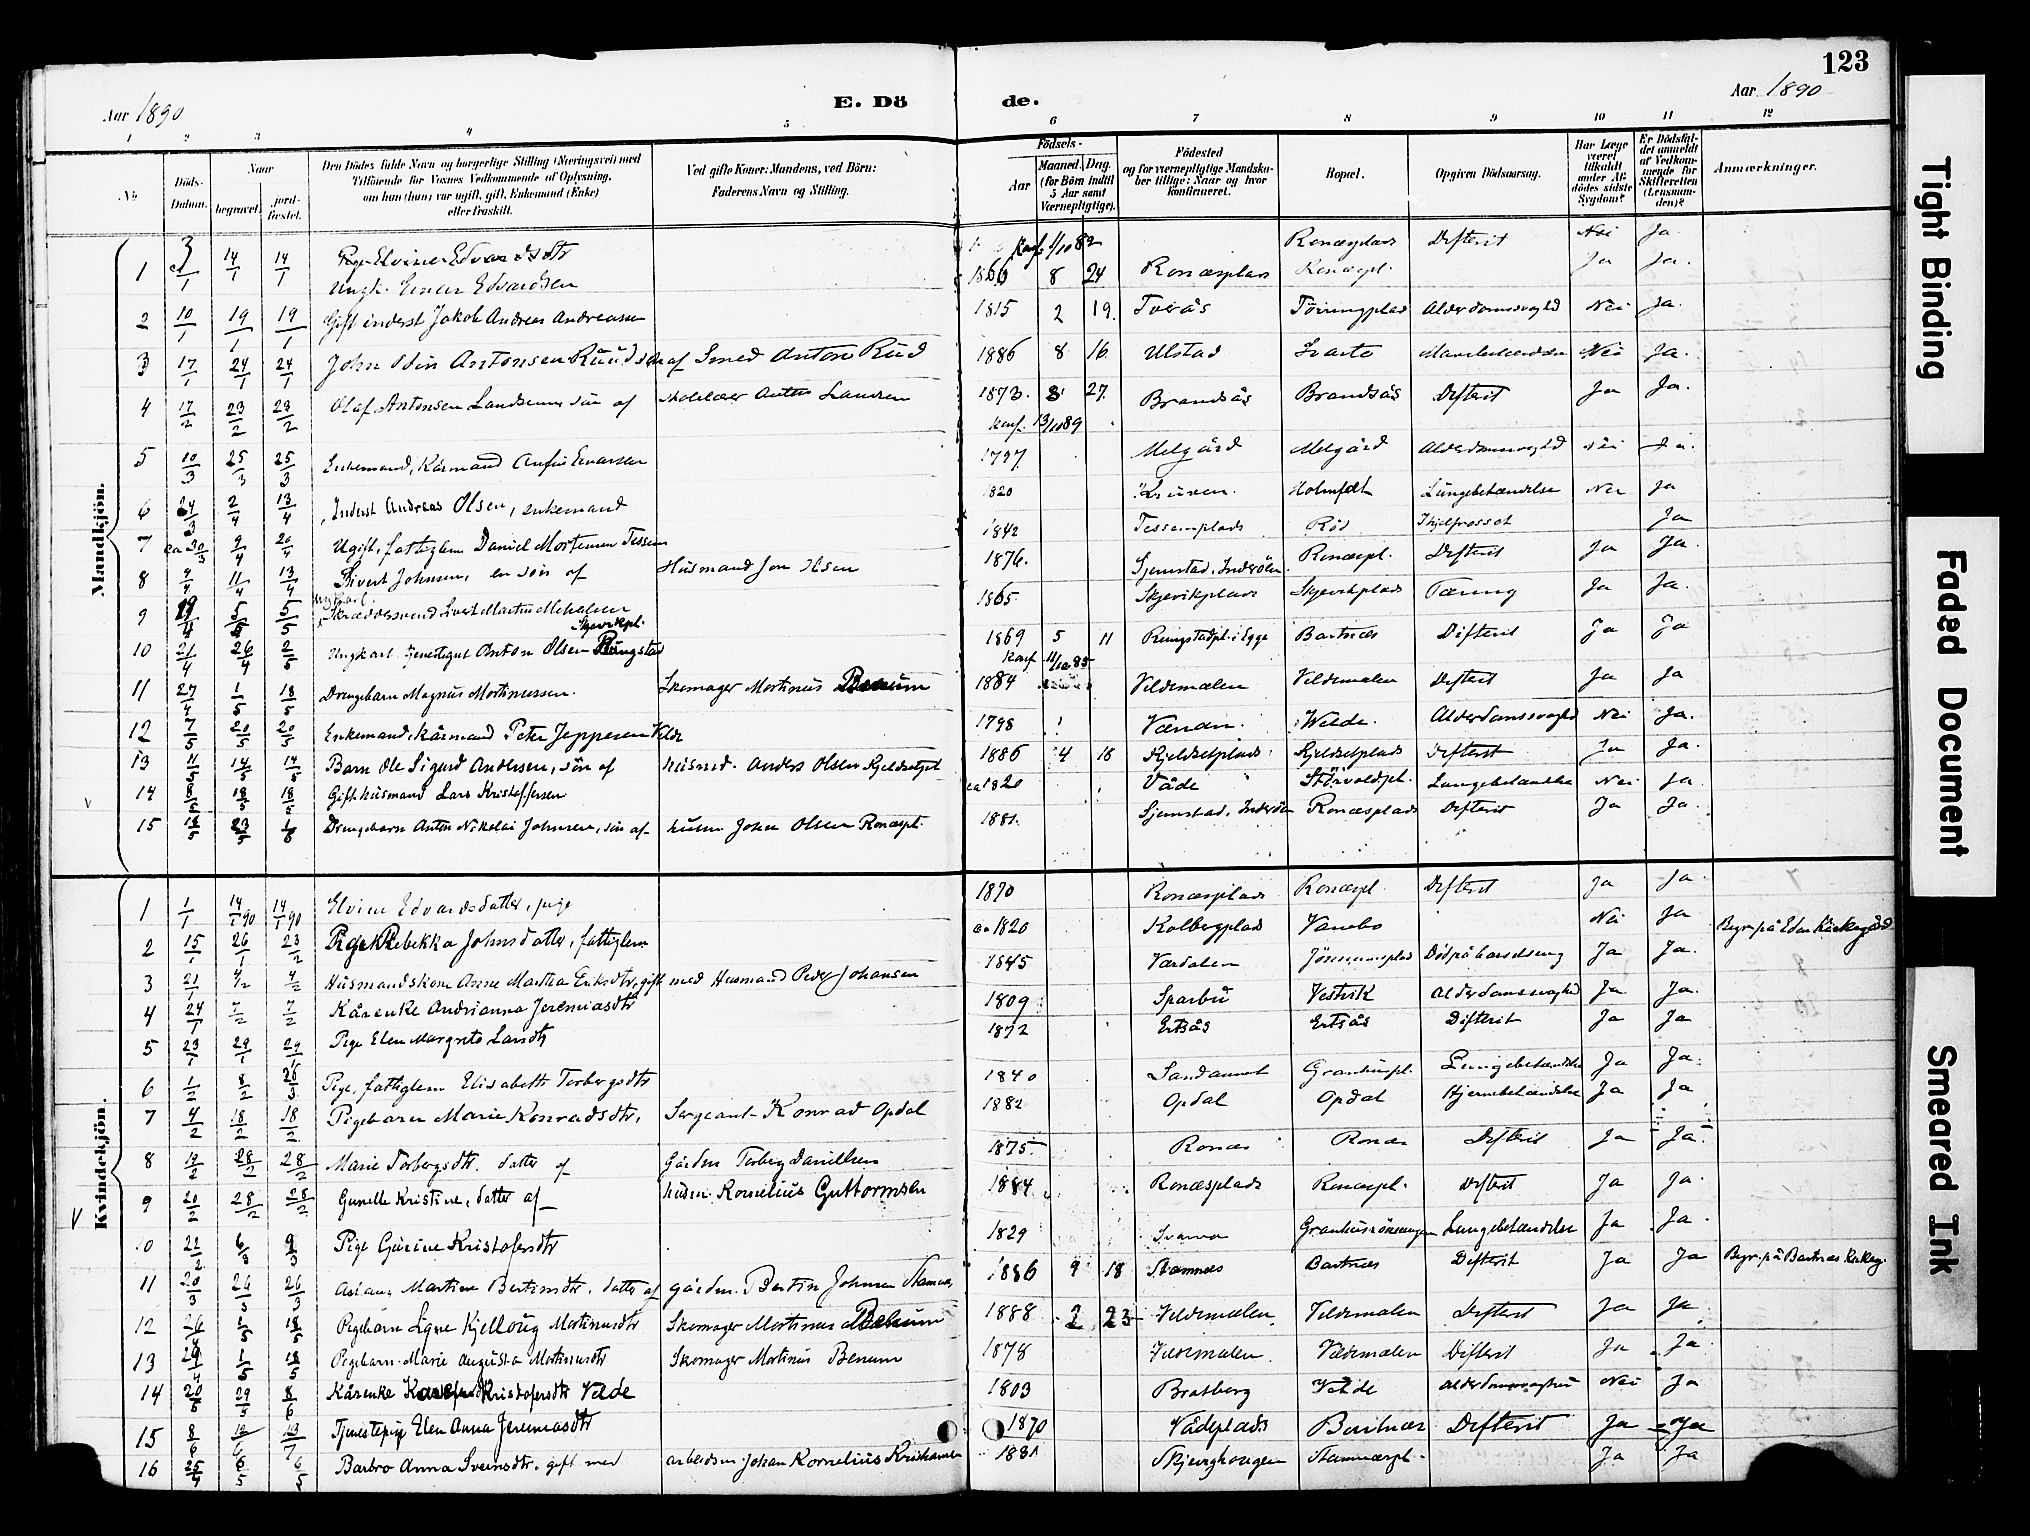 123
Aar 1890
E. Dö
de.
Aar 1890
1 2 3 4 5 6 7 8 9 10 11 12
Nö
Döds-Datum.
Naar
begravet.
jord-fæstet.
Den Dödes fulde Navn og borgerlige Stilling (Næringsvei) med
Tilföiende for Voxnes Vedkommende af Oplysning,
om han (hun) var ugift, gift, Enkemand (Enke)
eller fraskilt.
Ved gifte Koner: Mandens, ved Börn:
Faderens Navn og Stilling.
Födsels-
Aar
Maaned. Dag.
(for Börn indtil
5 Aar samt
Værnepligtige).
Födested
og for værnepligtige Mandska-
ber tillige: Naar og hvor
konfirmeret.
Bopæl.
Opgiven Dödsaarsag.
Har Læge
været
tilkaldt
under Af-
dödes sidste
Sygdom?
Er Dödsfal-
det anmeldt
af Vedkom-
mende for
Skifteretten
(Lensman-
den)?
Anmærkninger.
Mandkjön.
Pige Elvine Edvardsdtr Ronæsplads Difterit Nei Ja
1 14/1 14/1 Ungk. Einar Edvardsen Konf. 1/10 82 1866 8 24 Ronæsplads Ronæspl. Ja Ja.
2 10/1 19/1 19/1 Gift inderst Jakob Andreas Andreassen 1815 2 19. Alderdomssvaghed Nei Ja.
3 17/1 24/1 24/1 John Odin Antonsen Ruud søn af Smed Anton Rud 1886 8 16 Ulstad Nei Ja.
4 17/2 23/2 23/2 Olaf Antonsen Landsem søn af Anton 1873. 8 27. Brandsås Brandsås Difterit Ja Ja.
Konf. 13/10 89
5 10/3 25/3 25/3 Enkemand, Kårmand 1797. Melgård Melgård Alderdomssvaghed Nei Ja.
6 24/3 2/4 13/4 Inderst Andreas Olsen, enkemand 1820 Lungebetændelse Nei Ja
7 ca 30/3 9/4 20/4 Ugift, fattiglem Daniel Mortensen Tessem 1842 Tessemplads Rød Ihjelfrosset Ja
8 9/4 11/4 13/4 Sivert Johnsen, en søn af Husmand Jon Olsen 1876. Sjemstad. Inderøen. Ronæspl. Difterit Ja Ja.
9 19/4 5/5 5/5 Ungkarl. Skræddersvend Martin Mikalsen Skjevikpl. 1865 Skjevikplads Skjevikplads Tæring Ja Ja.
10 21/4 26/4 Ungkarl. tjenestegut Anton Olsen Ringstad 1869 5 11 Ringstadpl. i Egge Bartnæs Difterit Ja Ja
Konf 11/10 85
11 27/4 1/5 18/5 Drengebarn Magnus Mortinussen. Skomager Mortinus Benum 1884 Veldemælen Veldemælen Difterit Ja Ja
12 7/5 20/5 20/5 Enkemand, kårmand Peter Jeppesen Velde 1798 Welde. Alderdomssvaghed Nei Ja.
13 14/5 14/5 Barn Ole Sigurd Andersen, søn af husmd. Anders Olsen Kjeldsetpl. 1886 4 18 Kjeldsetplads Kjeldsetplads Difterit Ja Ja.
14 18/5 18/5 Gift husmand Lars Kristoffersen ca 1820 Våde Lungebetændelse Nei Ja
15 23/5 1/6 Drengebarn Anton Nikolai Johnsen, søn af husm John Olsen Ronæspl. 1881. Sjemstad. Inderøen Ronæsplads Difterit Ja Ja.
Kvindekjön.
1 1/1 14/1 90 14/1 90 Elvine Edvardsdatter, pige 1870 Ronæsplads Ronæspl Difterit Ja Ja
2 15/1 26/1 23/2 Pige Rebekka Johnsdatter, fattiglem ca 1820 Kolbergplads Vanebo Nei Ja Begr. på Kirkegård
3 21/1 4/2 4/2 Husmandskone Anne Martha Eriksdtr, gift med Husmand Peder Johansen 1845 Værdalen Død på barselseng Ja Ja.
4 24/1 7/2 7/2 Kårenke Andrianna Jeremiasdtr 1809 Sparbu Vestvik Alderdomssvaghed Ja Ja.
5 23/1 29/1 29/1 Pige Elen Margrete Larsdtr 1872 Ertsås Ertsås Difterit Ja Ja
6 1/2 8/2 26/3 Pige, fattiglem Elisabeth Torbergsdtr 1840 Sandamot Lungebetændelse Ja Ja.
7 4/2 18/2 18/2 Pigebarn Marie Konradsdtr. Sergeant Konrad Opdal 1882 Opdal Opdal Hjernebetændelse Ja Ja
8 12/2 28/2 28/2 Marie Torbergsdtr. datter af Gården Torberg Daniellsen 1875 Ronæs Ronæs Difterit Ja Ja.
9 20/2 28/2 28/2 Gunelle Kristine, datter af husm. Kornelius Guttormsen 1884 Ronæsplads Ronæspl. Difterit Ja Ja.
10 22/2 6/3 9/3 Pige Gurine Kristofersdtr 1829 Lungebetændelse Ja Ja.
11 20/3 26/3 26/3 Aslaug Martine Bertinsdtr. datter af gården. Bertin Johnsen Stamnæs 1886 9 18 Stamnæs Bartnæs Difterit Ja Ja Begr. på Bartnæs Kirkeg.
12 26/4 1/5 18/5 Pigebarn Signe Kjellaug Mortinusdtr Skomager Mortinus Benum 1888 2 23 Veldemælen Veldemælen Difterit Ja Ja
13 29/4 1/5 18/5 Pigebarn Marie Augusta Mortinusdtr Skomager Mortinus Benum 1878 Veldemælen Veldemælen Difterit Ja Ja
14 20/5 29/5 8/6 Kårenke Kristofersdtr Velde 1803 Bratberg Velde Alderdomssvaghed Nei Ja
15 8/6 13/7 Tjenestepige Elen Anna Jeremiasdtr 1870 Vådeplads Bartnæs Difterit Ja Ja
16 25/4 6/5 6/5 Barbro Anna Sveinsdtr. gift med arbeidsm. Johan Kornelius Kristiansen 1881 Skjerghaugen Stamnæspl. Ja Ja
Tight Binding
Faded Document
Smeared Ink